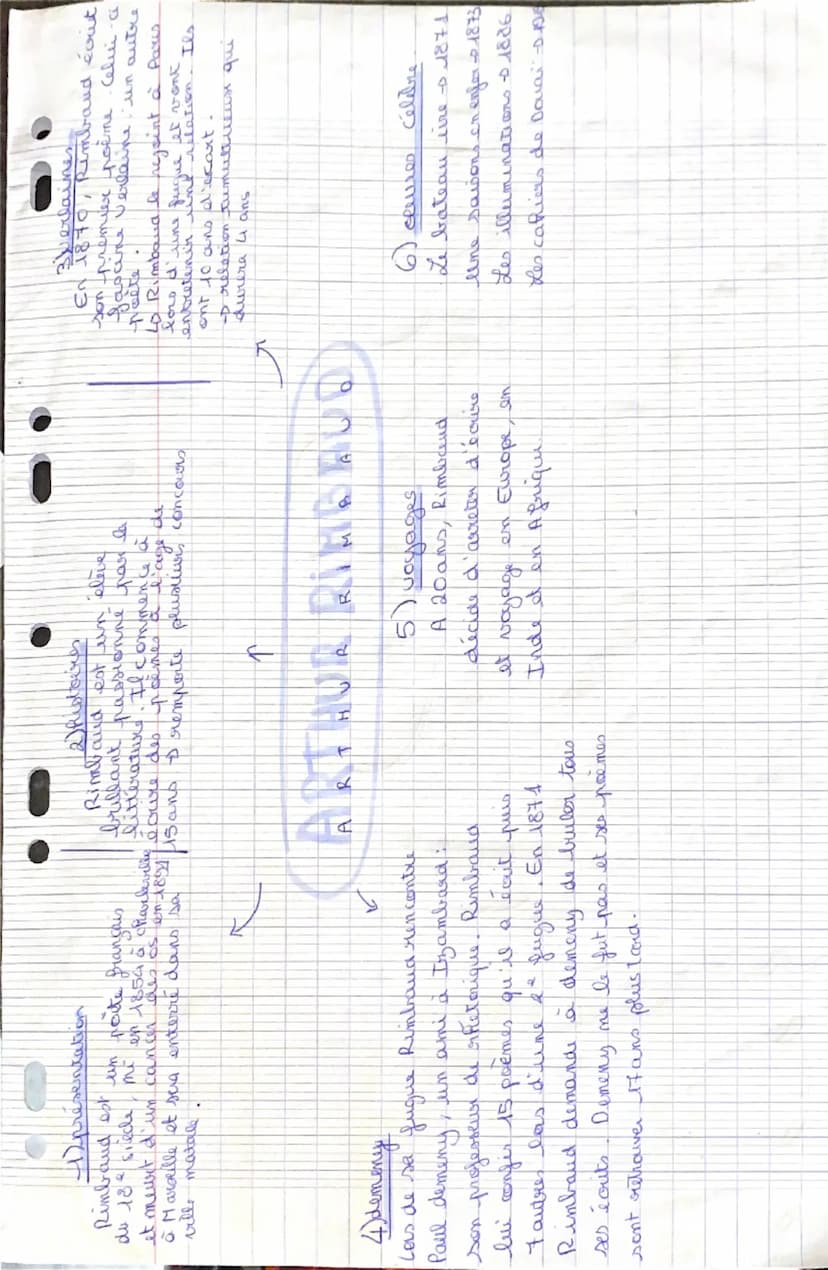 1) présentation
Rimbaud est un poète français
du 18e siècle, né en 1854 à Charleville
et meurt d'un cancer des os en 1891
à Marseille et sera enterré dans sa
ville natale.
2) histoires
Rimbaud est un élève
brillant passionné par la
littérature. Il commence à
écrire des poèmes à l'age de
15 ans → remporte plusieurs concours
3) verlaines
En 1870, Rimbaud écrit
son premier poème. Celui-ci
fascine Verlaine : un autre
poète.
↳ Rimbaud le rejoint à Paris
lors d'une fugue et vont
entretenir une relation. Ils
ont 10 ans d'écart.
→ relation tumultueux qui
durera 4 ans
ARTHUR RIMBAUD
ARTHUR RIMBAUD
4) demeny
Lors de sa fugue Rimbaud rencontre
Paul demeny, un ami à Izambard :
son professeur de rhétorique. Rimbaud
lui confis 15 poèmes qu'il a écrit puis
7 autres lors d'une 2e fugue. En 1871
Rimbaud demande à demeny de bruler tous
ses écrits. Demeny ne le fut pas et ses poèmes
sont retrouver 17 ans plus tard.
5) voyages
A 20 ans, Rimbaud
décide d'arreter d'écrire
et voyage en Europe, en
Inde et en Afrique
6) œuvres célèbre
Le bateau ivre → 1871
Une saisons en enfer → 1873
Les illuminations → 1886
Les cahiers de Douai →